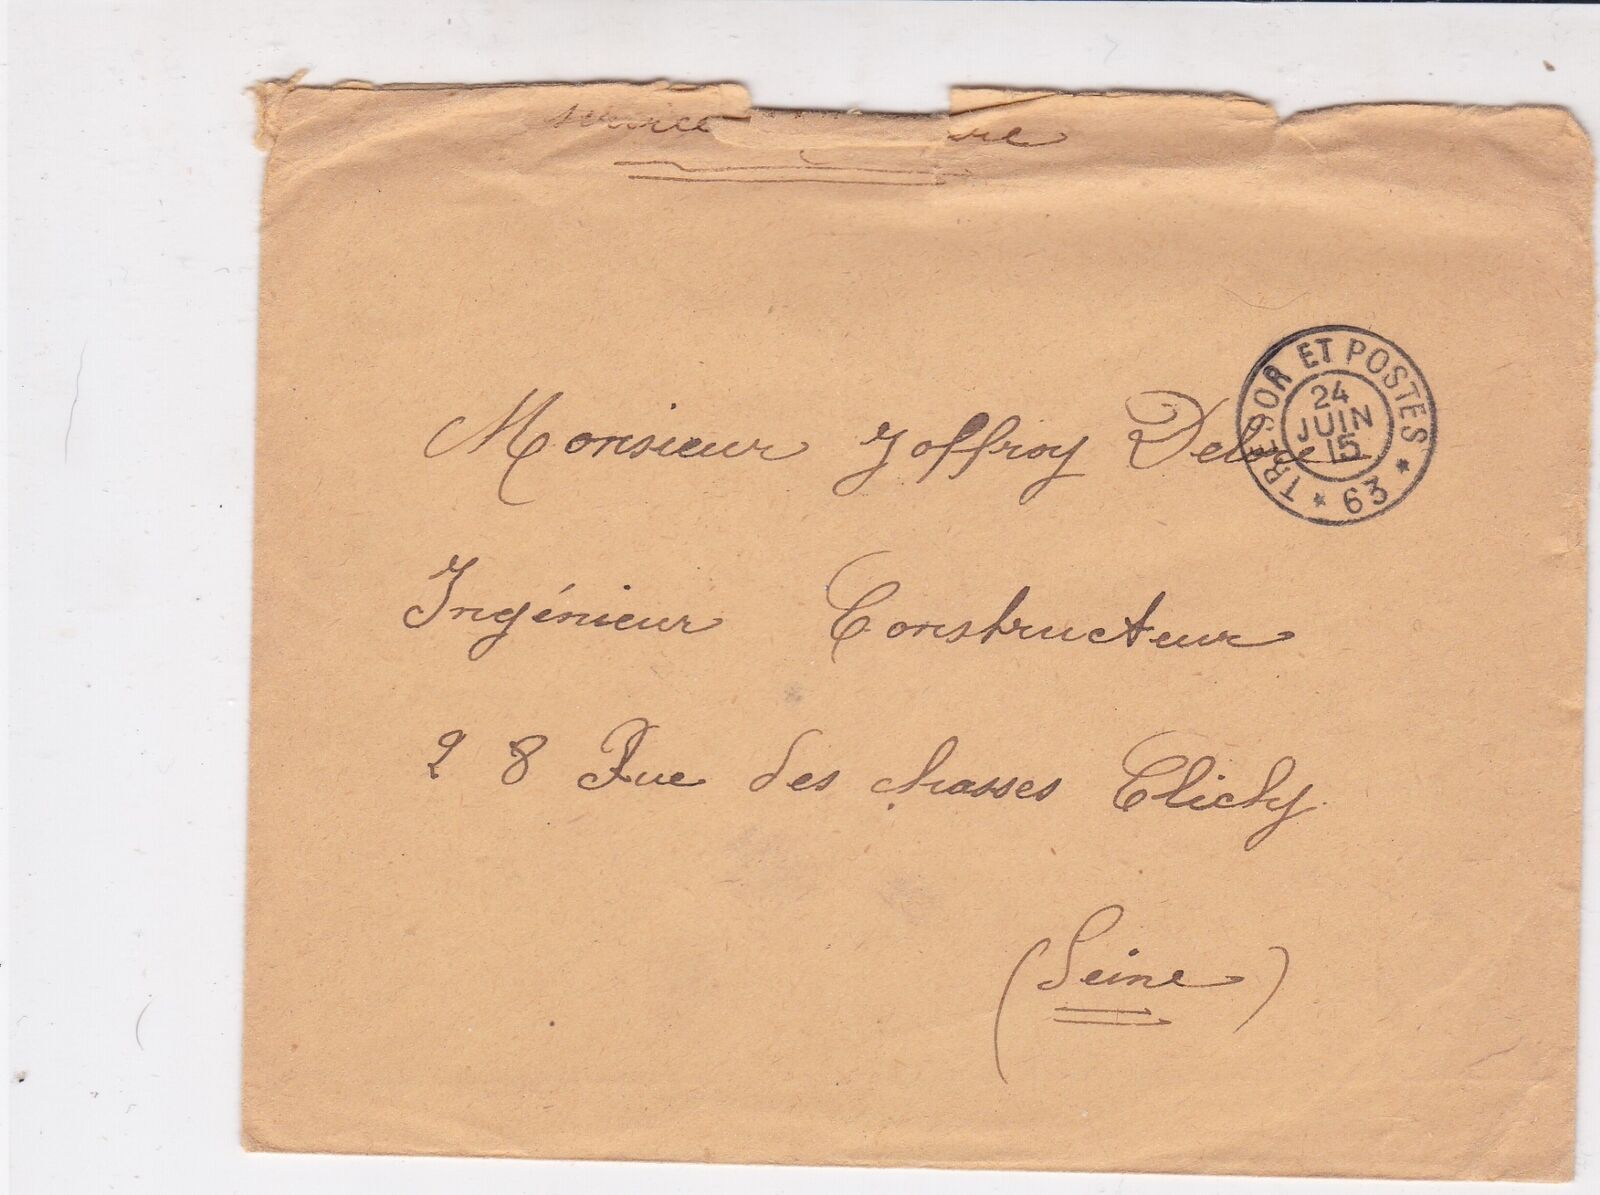 service
TRESOR ET POSTES
24
JUIN
15
* 63 *
Monsieur Joffroy Delore
Ingénieur Constructeur
28 Rue des chasses Clichy
(Seine)